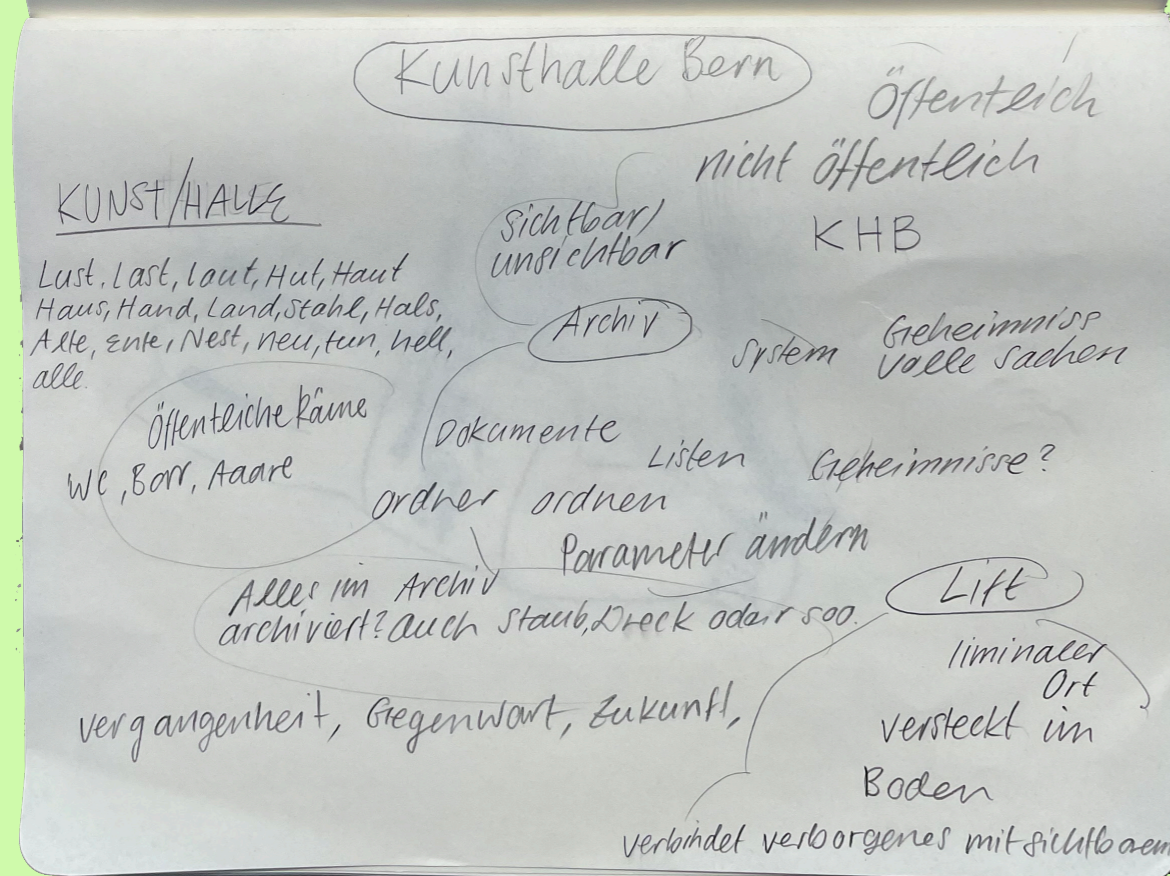 Kunsthalle Bern
Öffentlich
nicht öffentlich
KHB
KUNST/HALLE
Lust, Last, laut, Hut, Haut
Haus, Hand, Land, Stahl, Hals,
Alte, Ente, Nest, neu, tun, hell,
alle.
Sichtbar/
unsichtbar
Archiv
System
Geheimniss
volle Sachen
Öffentliche Räume
WC, Borr, Aaare
Dokumente
Listen
Geheimnisse?
Ordner ordnen
Parameter ändern
Alles im Archiv
archiviert? auch Staub, Dreck odair soo.
Lift
liminaler
Ort
versteckt im
Boden
vergangenheit, Gegenwart, Zukunft,
verbindet verborgenes mit sichtbarem